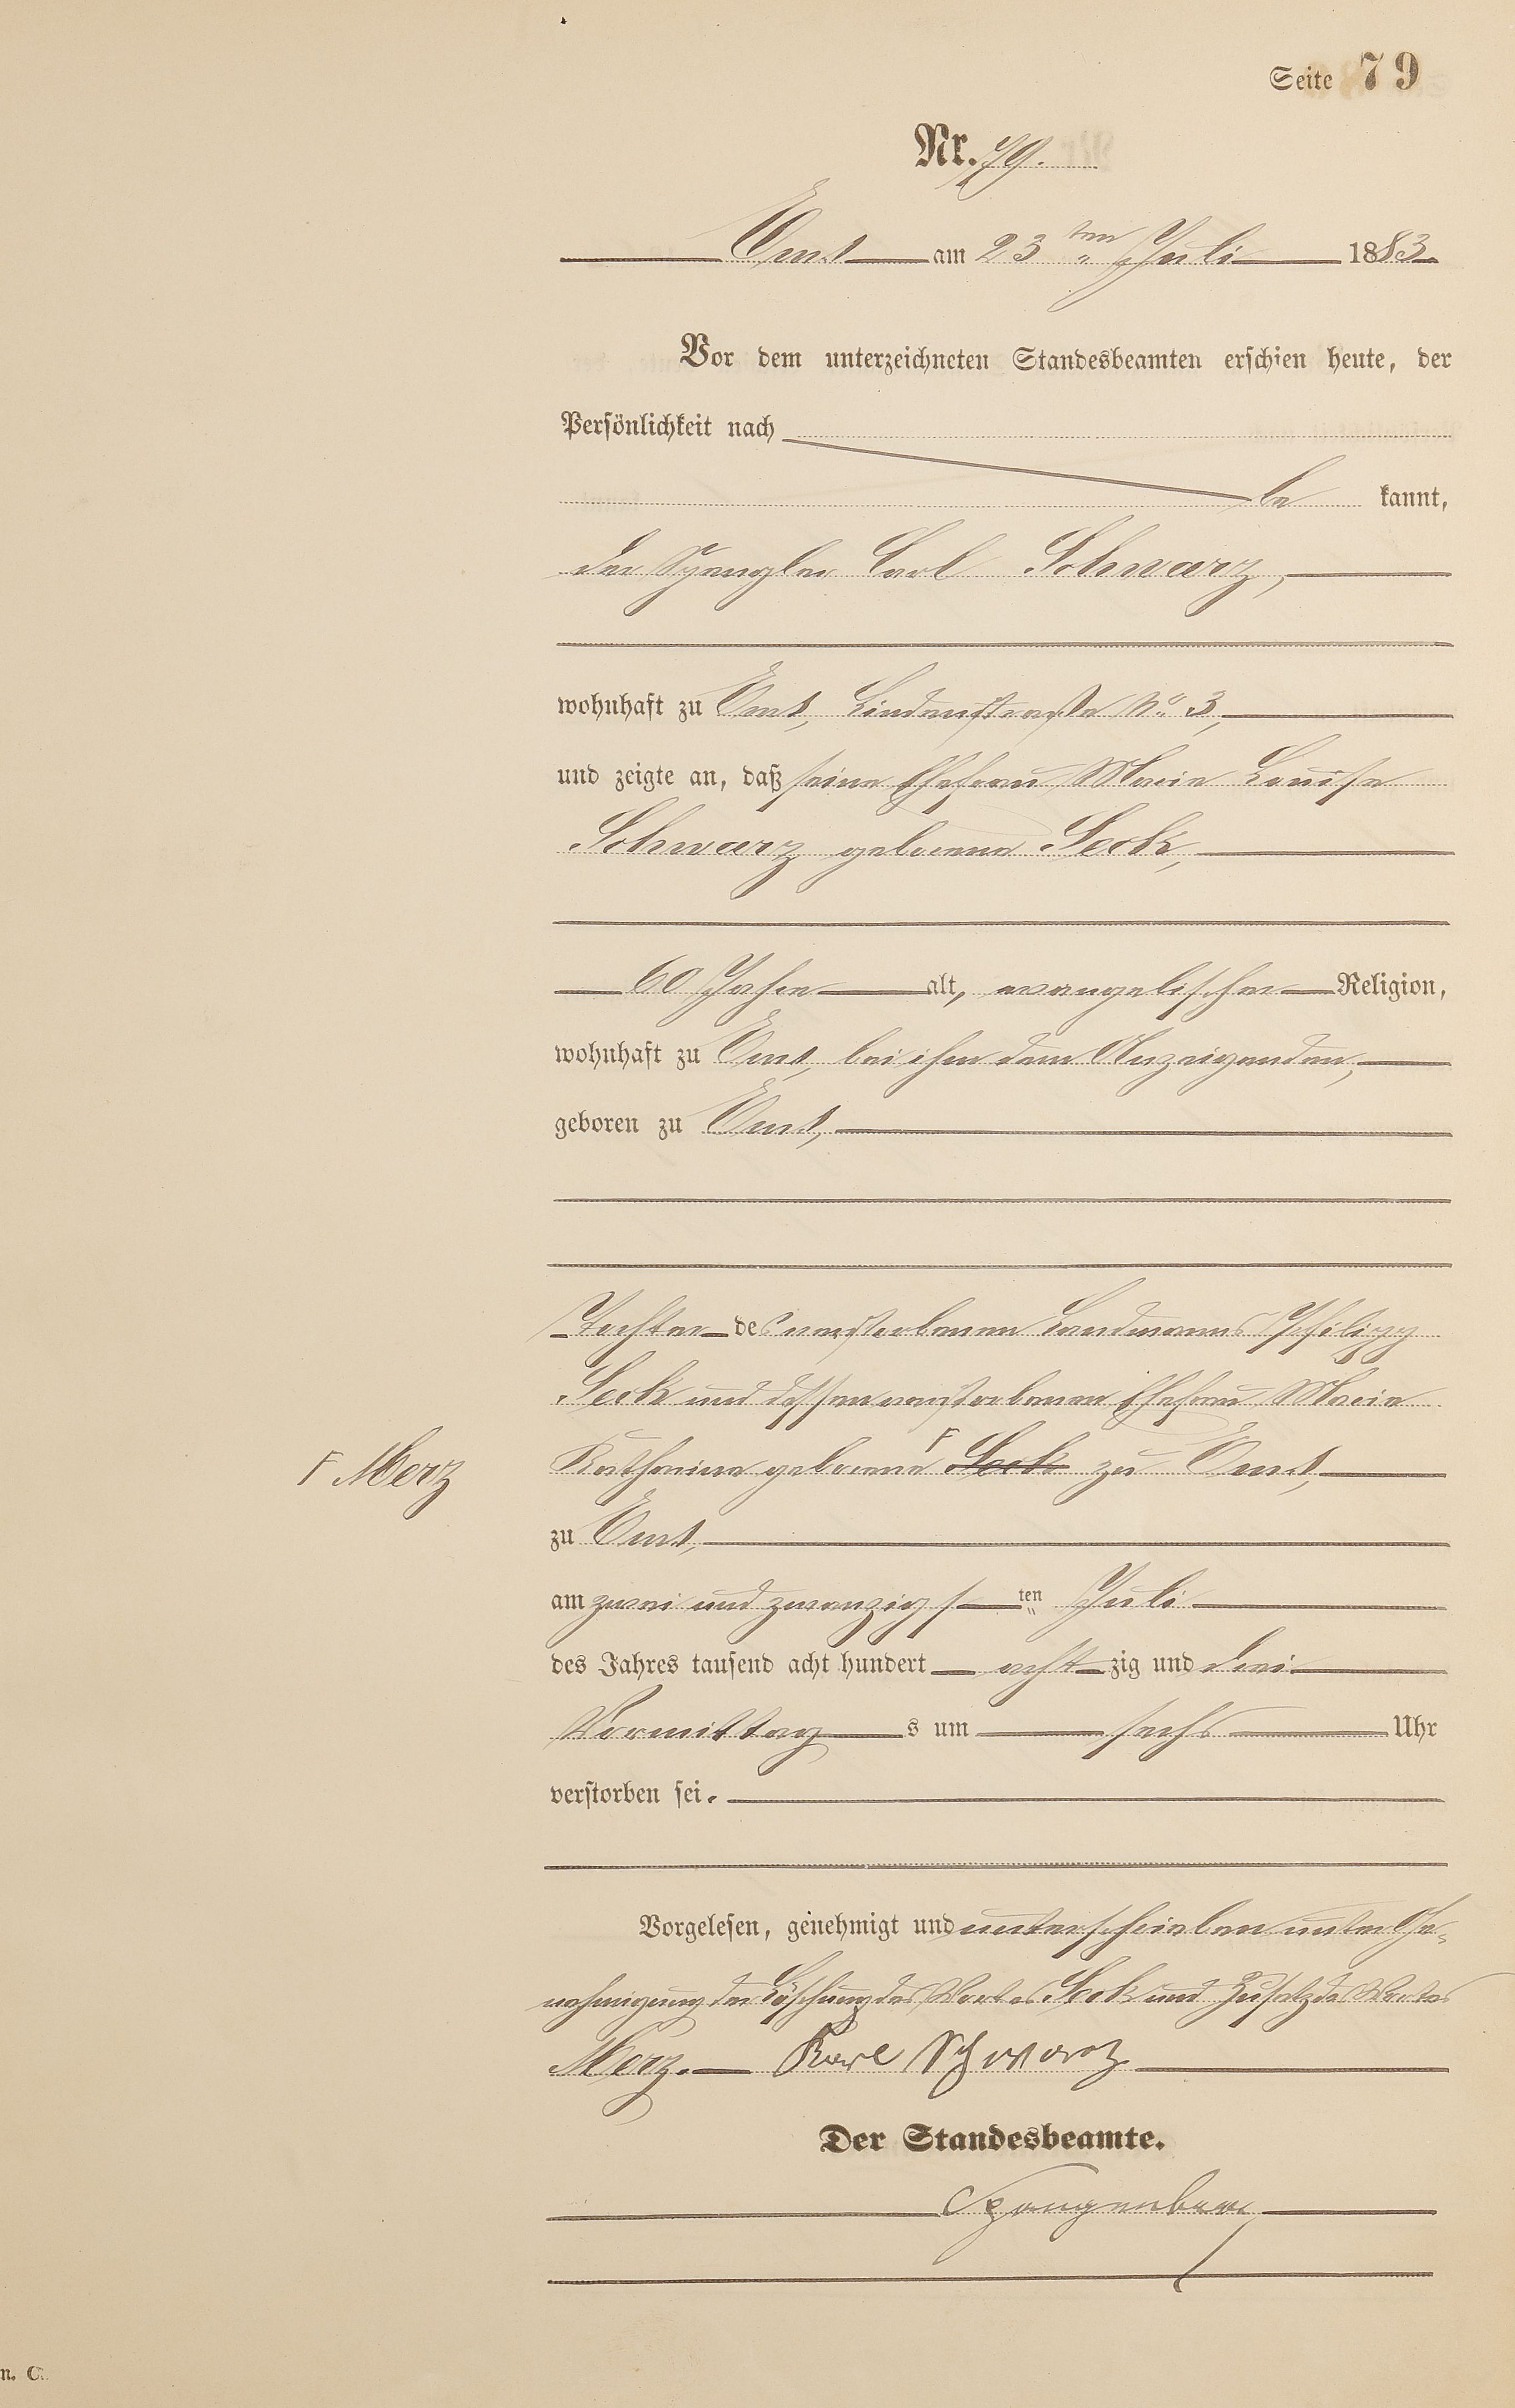 Seite 79
Nr. 79.
Ems am 23 ten Juli 1883.
Vor dem unterzeichneten Standesbeamten erschien heute, der
Persönlichkeit nach
be kannt,
der Spengler Carl Schwarz,
wohnhaft zu Ems, Lindenstraße No. 3,
und zeigte an, daß seine Ehefrau Marie Louise
Schwarz geborene Seck,
60 Jahre alt, evangelischer Religion,
wohnhaft zu Ems, bei ihm dem Anzeigenden,
geboren zu Ems,
Tochter des verstorbenen Landmanns Philipp
Seck und dessen verstorbenen Ehefrau Marie
Katharine geborene F Seck zu Ems,
F Merz
zu Ems,
am zwei und zwanzigs ten Juli
des Jahres tausend acht hundert acht zig und drei
Vormittag s um sechs Uhr
verstorben sei.
Vorgelesen, genehmigt und unterschrieben unter Ge-
nehmigung der Löschung des Wortes Seck und Zusatz des Wortes
Merz. Karl Schwarz
Der Standesbeamte.
Spangenberg
n. C.